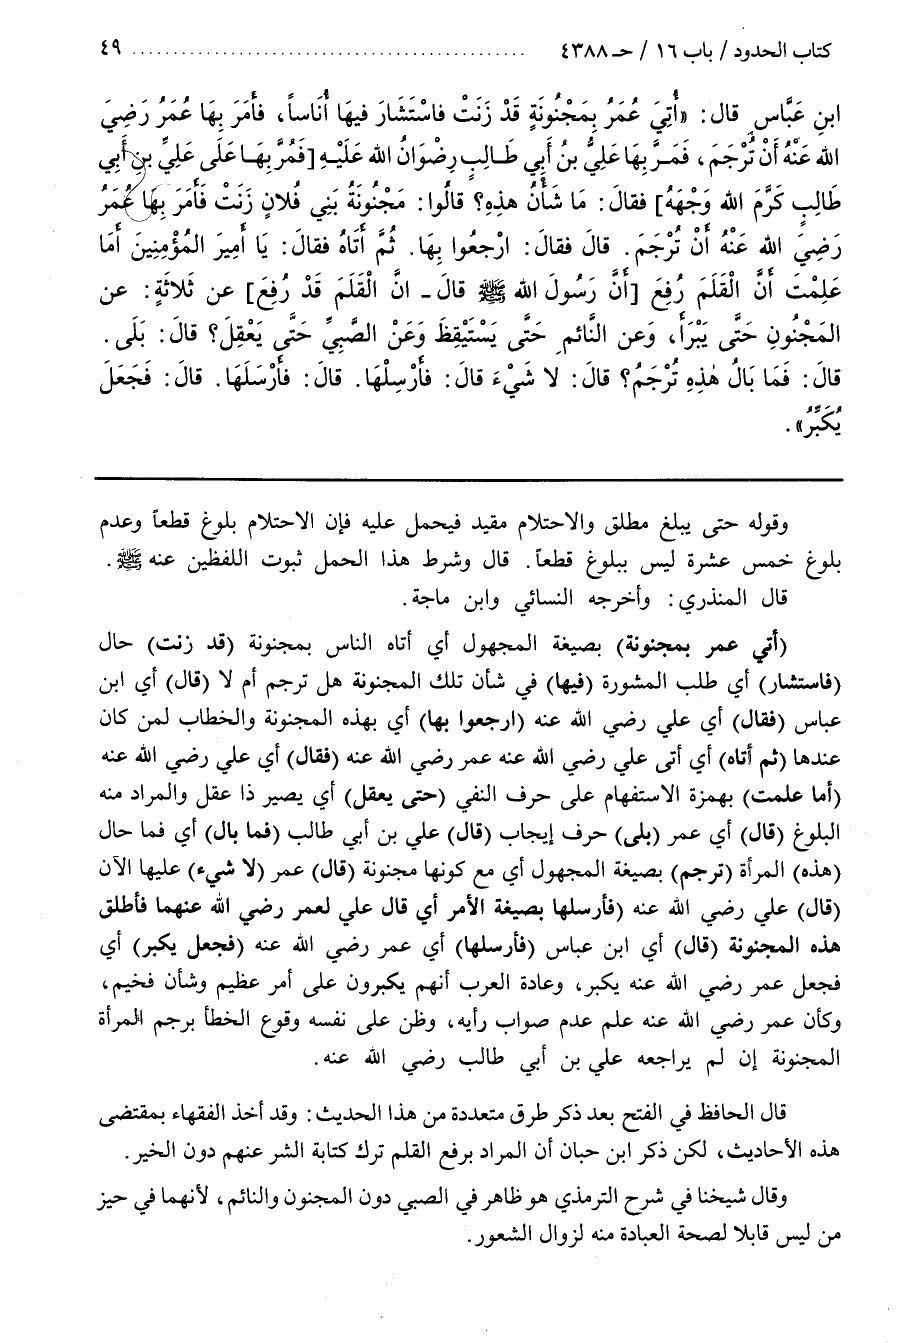 كتاب الحدود / باب ١٦ / حـ ٤٣٨٨ ................................................ ٤٩
ابنِ عَبَّاسٍ قال: «أُتِيَ عُمَرُ بِمَجْنُونَةٍ قَدْ زَنَتْ فاسْتَشَارَ فيهَا أُنَاساً، فأَمَرَ بِهَا عُمَرُ رَضِيَ
الله عَنْهُ أَنْ تُرْجَمَ، فَمَـرَّ بِهَا عَلِيُّ بنُ أَبِي طَـالِبٍ رِضْوَانُ الله عَلَيْـهِ [فَمُرَّ بِهَـا عَلَى عَلِيِّ بنِ أَبِي
طَالِبٍ كَرَّمَ الله وَجْهَهُ] فقالَ: مَا شَأْنُ هذِهِ؟ قالُوا: مَجْنُونَةُ بَنِي فُلَانٍ زَنَتْ فَأَمَرَ بِهَا عُمَرُ
رَضِيَ الله عَنْهُ أَنْ تُرْجَمَ. قالَ فقالَ: ارْجعُوا بِهَا. ثُمَّ أَتَاهُ فقالَ: يَا أَمِيرَ المُؤْمِنِينَ أَمَا
عَلِمْتَ أَنَّ الْقَلَمَ رُفِعَ [أَنَّ رَسُولَ الله ﷺ قالَ ـ انَّ الْقَلَمَ قَدْ رُفِعَ] عن ثَلَاثَةٍ: عن
المَجْنُونِ حَتَّى يَبْرَأَ، وَعن النَّائمِ حَتَّى يَسْتَيْقِظَ وَعَنْ الصَّبِيِّ حَتَّى يَعْقِلَ؟ قالَ: بَلَى.
قالَ: فَمَا بَالُ هٰذِهِ تُرْجَمُ؟ قالَ: لا شَيْءَ قالَ: فأَرْسِلْهَا. قالَ: فأَرْسَلَهَا. قالَ: فَجَعَلَ
يُكَبِّرُ».
وقوله حتى يبلغ مطلق والاحتلام مقيد فيحمل عليه فإن الاحتلام بلوغ قطعاً وعدم
بلوغ خمس عشرة ليس ببلوغ قطعاً. قال وشرط هذا الحمل ثبوت اللفظين عنه ﷺ.
قال المنذري: وأخرجه النسائي وابن ماجة.
(أتي عمر بمجنونة) بصيغة المجهول أي أتاه الناس بمجنونة (قد زنت) حال
(فاستشار) أي طلب المشورة (فيها) في شأن تلك المجنونة هل ترجم أم لا (قال) أي ابن
عباس (فقال) أي علي رضي الله عنه (ارجعوا بها) أي بهذه المجنونة والخطاب لمن كان
عندها (ثم أتاه) أي أتى علي رضي الله عنه عمر رضي الله عنه (فقال) أي علي رضي الله عنه
(أما علمت) بهمزة الاستفهام على حرف النفي (حتى يعقل) أي يصير ذا عقل والمراد منه
البلوغ (قال) أي عمر (بلى) حرف إيجاب (قال) علي بن أبي طالب (فما بال) أي فما حال
(هذه) المرأة (ترجم) بصيغة المجهول أي مع كونها مجنونة (قال) عمر (لا شيء) عليها الآن
(قال) علي رضي الله عنه (فأرسلها بصيغة الأمر أي قال علي لعمر رضي الله عنهما فأطلق
هذه المجنونة (قال) أي ابن عباس (فأرسلها) أي عمر رضي الله عنه (فجعل يكبر) أي
فجعل عمر رضي الله عنه يكبر، وعادة العرب أنهم يكبرون على أمر عظيم وشأن فخيم،
وكأن عمر رضي الله عنه علم عدم صواب رأيه، وظن على نفسه وقوع الخطأ برجم المرأة
المجنونة إن لم يراجعه علي بن أبي طالب رضي الله عنه.
قال الحافظ في الفتح بعد ذكر طرق متعددة من هذا الحديث: وقد أخذ الفقهاء بمقتضى
هذه الأحاديث، لكن ذكر ابن حبان أن المراد برفع القلم ترك كتابة الشر عنهم دون الخير.
وقال شيخنا في شرح الترمذي هو ظاهر في الصبي دون المجنون والنائم، لأنهما في حيز
من ليس قابلا لصحة العبادة منه لزوال الشعور.